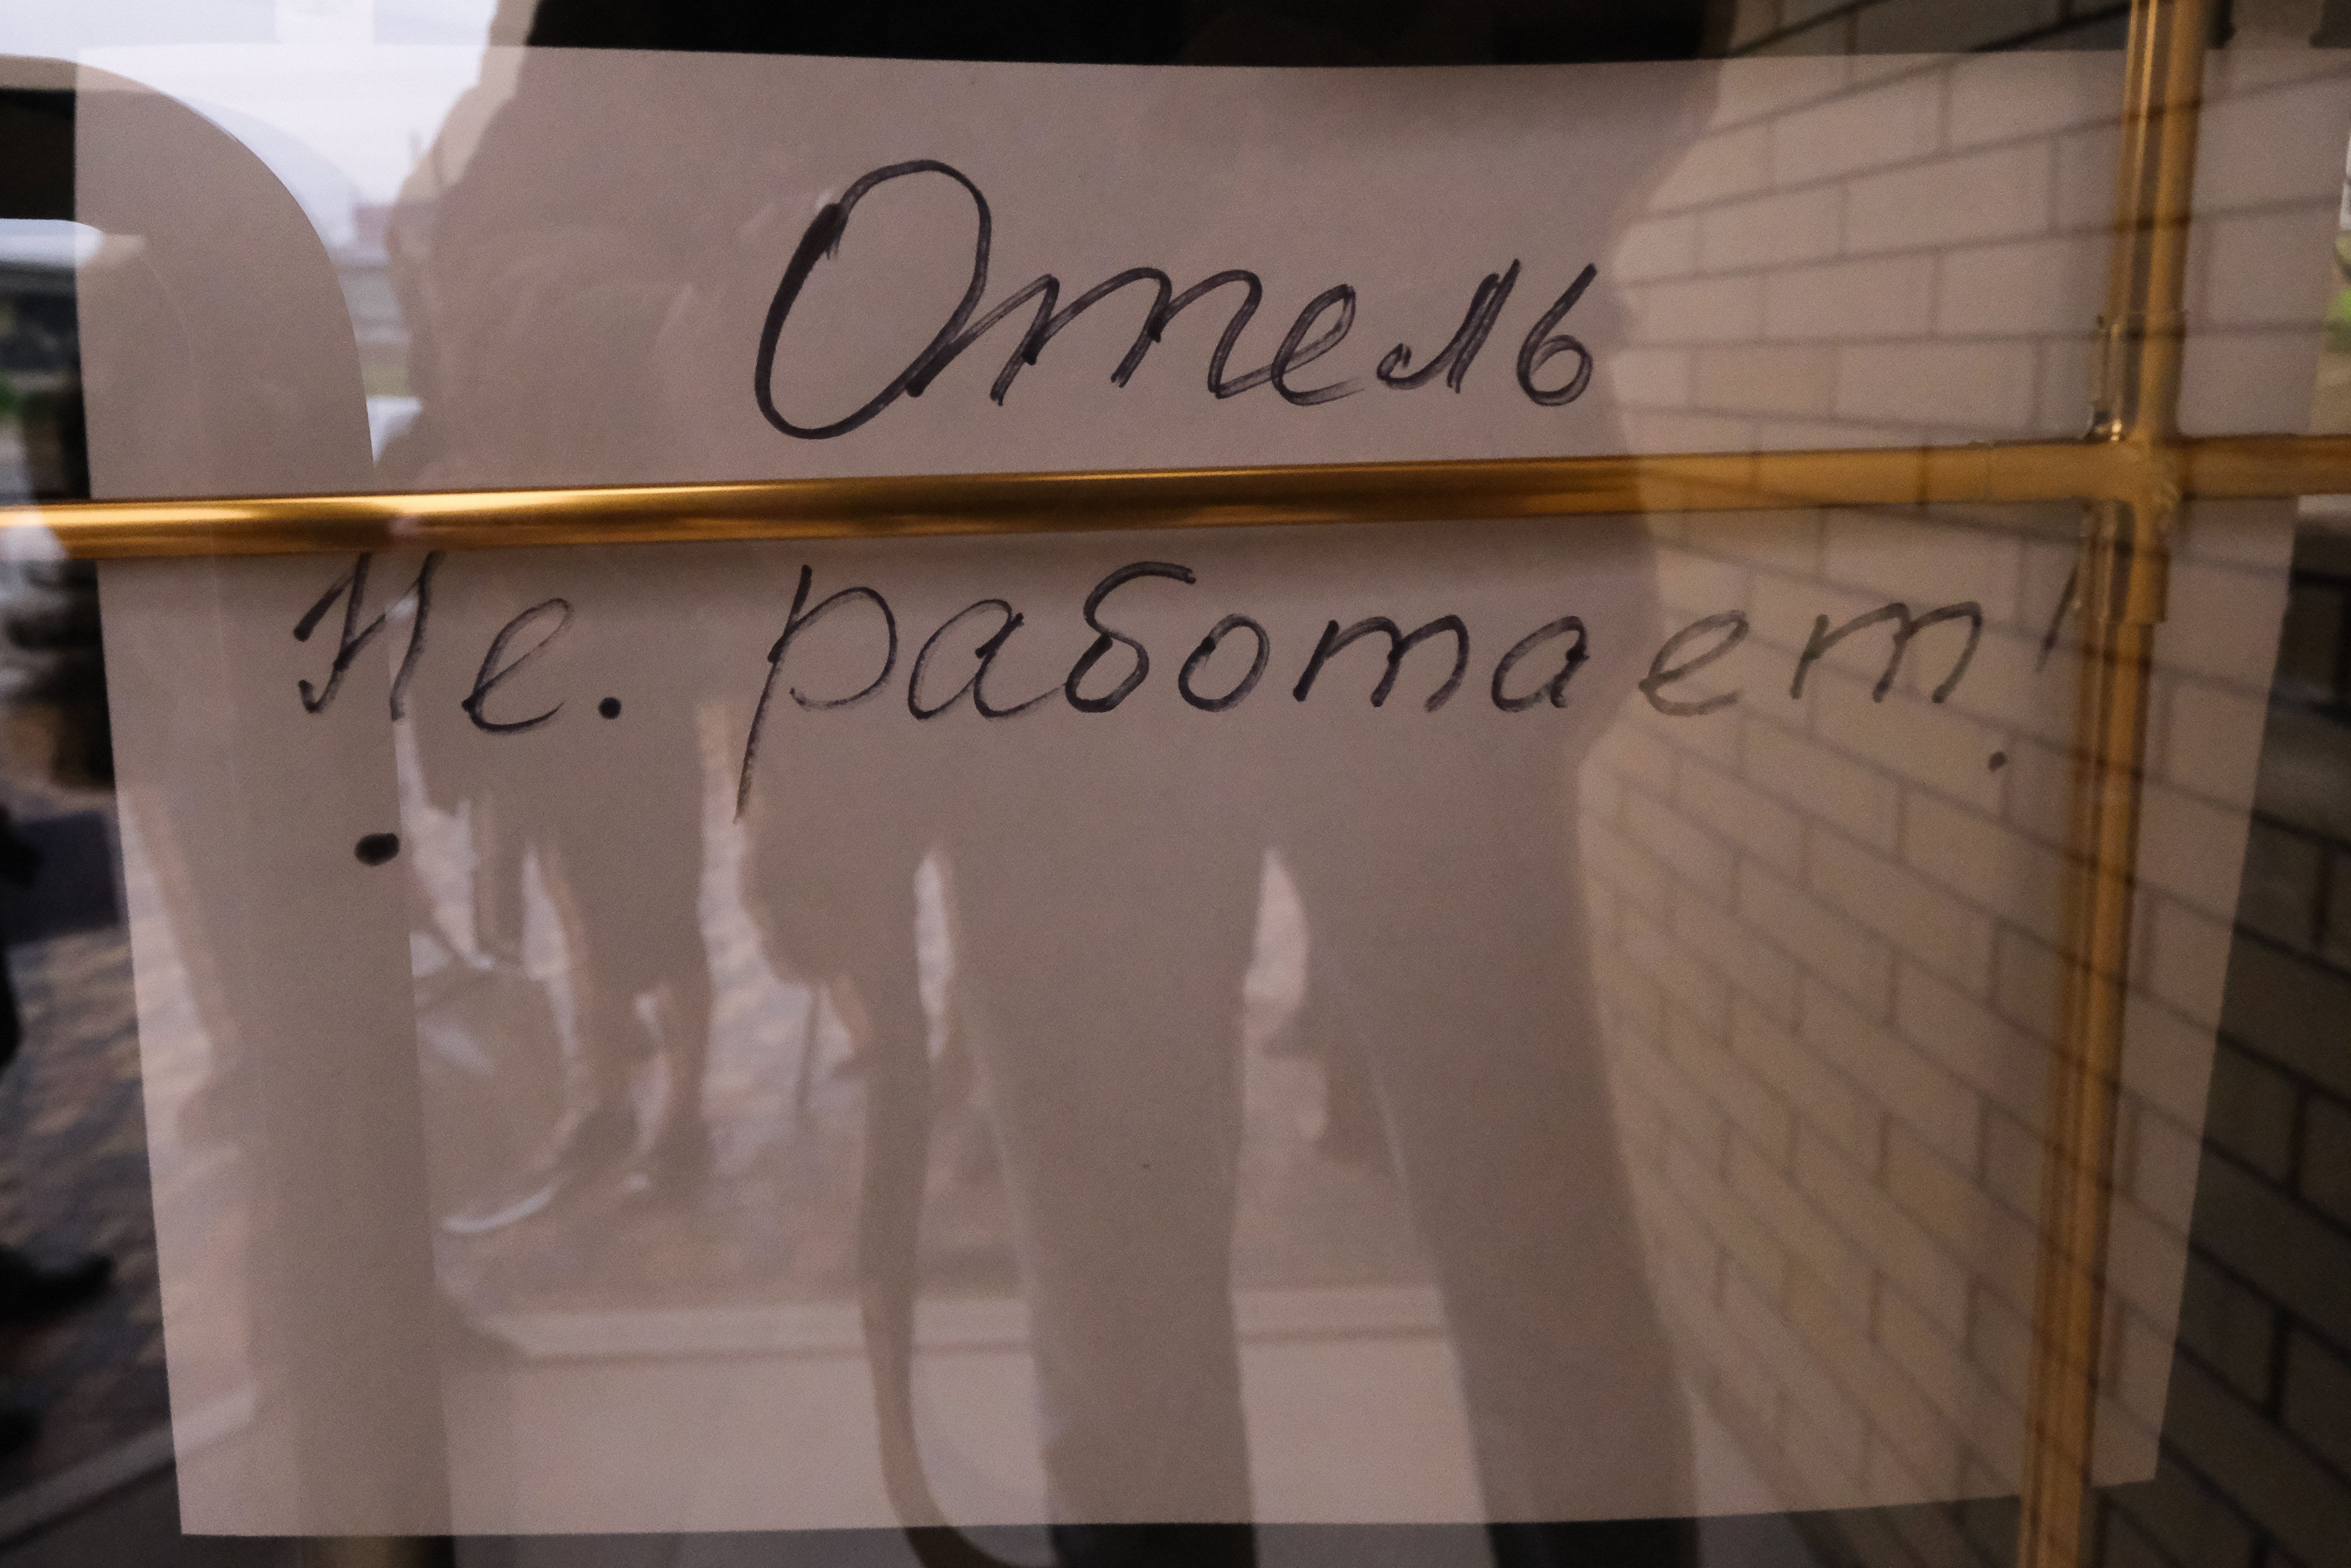 Отель
Не. работает!